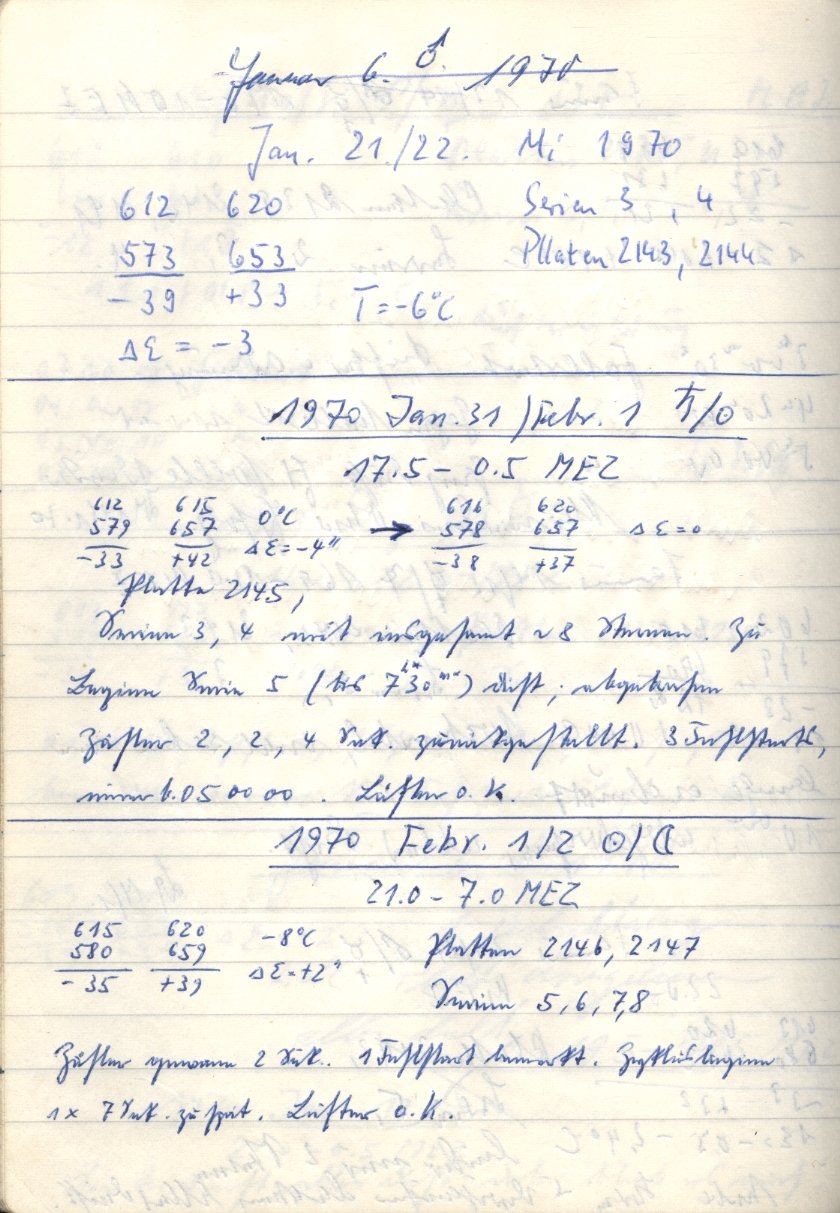 Januar 6. ♂ 1970
Jan. 21./22. Mi 1970
612 620 Serien 3, 4
573 653 Pllaten 2143, 2144
-39 +33 T=-6°C
ΔE = -3
1970 Jan. 31/Febr. 1 ♄/⊙
17.5 - 0.5 MEZ
612 615 0°C → 616 620 ΔE=0
579 657 ΔE=-4" 578 657
-33 +42 -38 +37
Platte 2145,
Serien 3, 4 mit insgesamt 28 Sternen. Zu
Beginn Serie 5 (bis 7h30m) dist; abgebrochen
Zähler 2, 2, 4 Sek. zurückgestellt. 3 Fehlstarts,
einer b. 05 00 00. Lüfter o.K.
1970 Febr. 1/2 ⊙/☾
21.0 - 7.0 MEZ
615 620 -8°C Platten 2146, 2147
580 659 ΔE=+2"
-35 +39 Serien 5, 6, 7, 8
Zähler gewann 2 Sek.. 1 Fehlstart bemerkt. Zyklusbeginn
1x 7 Sek. zu spät. Lüfter o.K.